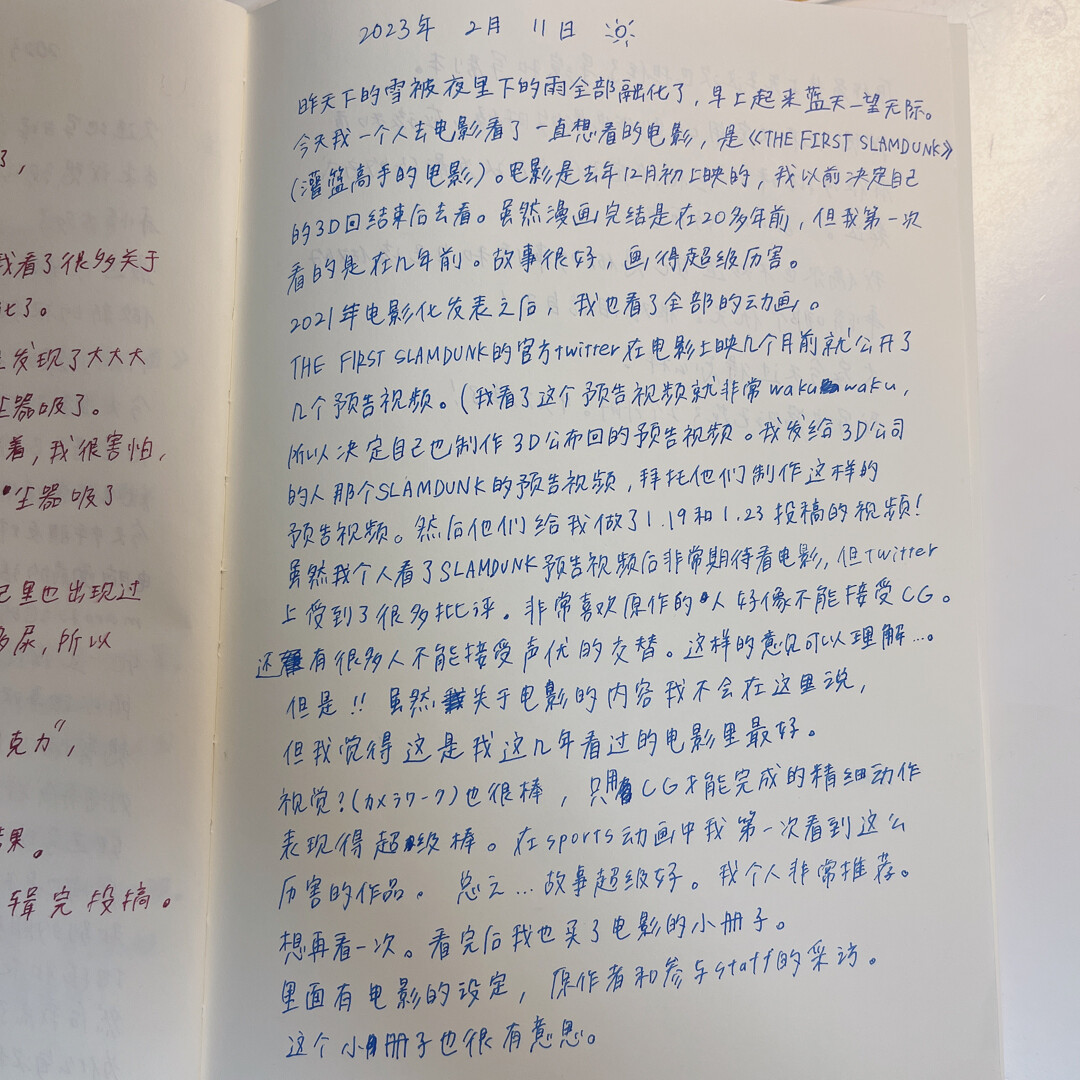 了，
我看了很多关于
化了。
发现了大大大
尘器吸了。
着，我很害怕，
尘器吸了
己里也出现过
多尿，所以
克力”，
结果。
辑完投搞。
2023年 2月 11日
昨天下的雪被夜里下的雨全部融化了，早上起来蓝天一望无际。
今天我一个人去电影看了一直想看的电影，是《THE FIRST SLAMDUNK》
(灌篮高手的电影)。电影是去年12月初上映的，我以前决定自己
的3D回结束后去看。虽然漫画完结是在20多年前，但我第一次
看的是在几年前。故事很好，画得超级历害。
2021年电影化发表之后，我也看了全部的动画。
THE FIRST SLAMDUNK的官方twitter在电影上映几个月前就公开了
几个预告视频。(我看了这个预告视频就非常wakuwaku，
所以决定自己也制作3D公布回的预告视频。我发给3D公司
的人那个SLAMDUNK的预告视频，拜托他们制作这样的
预告视频。然后他们给我做了1.19和1.23投稿的视频！
虽然我个人看了SLAMDUNK预告视频后非常期待看电影，但twitter
上受到了很多批评。非常喜欢原作的人好像不能接受CG。
还有很多人不能接受声优的交替。这样的意见可以理解…。
但是!! 虽然关于电影的内容我不会在这里说，
但我觉得这是我这几年看过的电影里最好。
视觉?(カメラワーク)也很棒，只用CG才能完成的精细动作
表现得超级棒。在sports动画中我第一次看到这么
历害的作品。 总之…故事超级好。我个人非常推荐。
想再看一次。看完后我也买了电影的小册子。
里面有电影的设定，原作者和参与staff的采访。
这个小册子也很有意思。